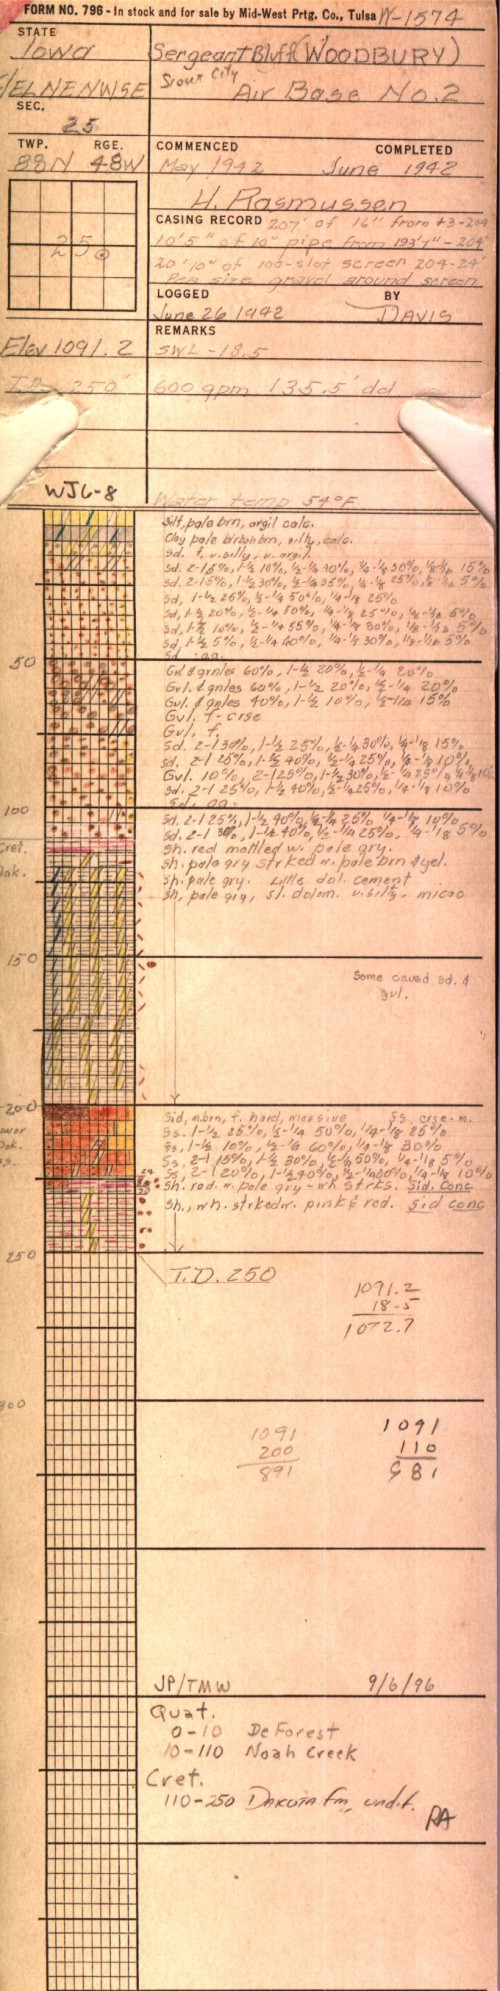 FORM NO. 796 - In stock and for sale by Mid-West Prtg. Co., Tulsa W-1574
STATE
Iowa
Sergeant Bluff (WOODBURY)
Sioux City
Air Base No. 2
NENWSE
SEC.
25
TWP. RGE.
88N 48W
COMMENCED COMPLETED
May 1942 June 1942
H. Rasmussen
CASING RECORD 207' of 16" from +3-204
10'5" of 10" pipe from 193'7" - 204'
20'10" of 100-slot screen 204-24'
Pea size gravel around screen
25
LOGGED BY
June 26 1942 DAVIS
REMARKS
Elev 1091.2 SWL - 18.5
T.D. 250' 600 gpm 135.5' dd
WJ6-8
Water temp 54°F
Silt, pale brn, argil calc.
Clay pale brn, silty, calc.
Sd. f. v. silty, v. argil.
Sd. 2-1 5%, 1-½ 10%, ½-¼ 40%, ¼-⅛ 30%, 15%
Sd. 2-1 5%, 1-½ 30%, ½-¼ 35%, ¼-⅛ 25%, 5%
Sd, 1-½ 25%, ½-¼ 50%, ¼-⅛ 25%
Sd, 1-½ 20%, ½-¼ 50%, ¼-⅛ 25%, 5%
Sd, 1-½ 10%, ½-¼ 55%, ¼-⅛ 30%, 5%
Sd, 1-½ 5%, ½-¼ 60%, ¼-⅛ 30%, 5%
Sd. aa.
50
Gvl & grnles 60%, 1-½ 20%, ½-¼ 20%
Gvl. & gnles 60%, 1-½ 20%, ½-¼ 20%
Gvl. & gnles 40%, 1-½ 10%, 15%
Gvl. f-crse
Gvl. f.
Sd. 2-1 30%, 1-½ 25%, ½-¼ 30%, ¼-⅛ 15%
Sd. 2-1 25%, 1-½ 40%, ½-¼ 25%, ¼-⅛ 10%
Gvl. 10%, 2-1 25%, 1-½ 30%, ½-¼ 25%, ¼-⅛ 10%
Sd. 2-1 25%, 1-½ 40%, ½-¼ 25%, ¼-⅛ 10%
Sd. aa.
100
Sd. 2-1 25%, 1-½ 40%, ½-¼ 25%, ¼-⅛ 10%
Sd. 2-1 30%, 1-½ 40%, ½-¼ 25%, ¼-⅛ 5%
Cret.
Sh. red mottled w. pale gry.
Dak.
Sh. pale gry strked w. pale brn & yel.
Sh. pale gry. Little dol. cement
Sh, pale gry, sl. dolom. v. silty, micac
150
Some caved sd. &
gvl.
200
Sid, m.brn, f. hard, massive Ss. crse-m.
Lower
Ss. 1-½ 25%, ½-¼ 50%, ¼-⅛ 25%
Dak.
Ss, 1-½ 10%, ½-¼ 60%, ¼-⅛ 30%
Ss.
Ss, 2-1 15%, 1-½ 30%, ½-¼ 50%, ¼-⅛ 5%
Ss, 2-1 20%, 1-½ 40%, ½-¼ 30%, ¼-⅛ 10%
Sh. red. w. pale gry - wh strks. Sid. Conc
Sh., wh. strked w. pink & red. Sid conc
250
T.D. 250
1091.2
18.5
1072.7
300
1091
200
891
1091
110
981
JP/TMW 9/6/96
Quat.
0-10 DeForest
10-110 Noah Creek
Cret.
110-250 DAKOTA fm, undif.
RA